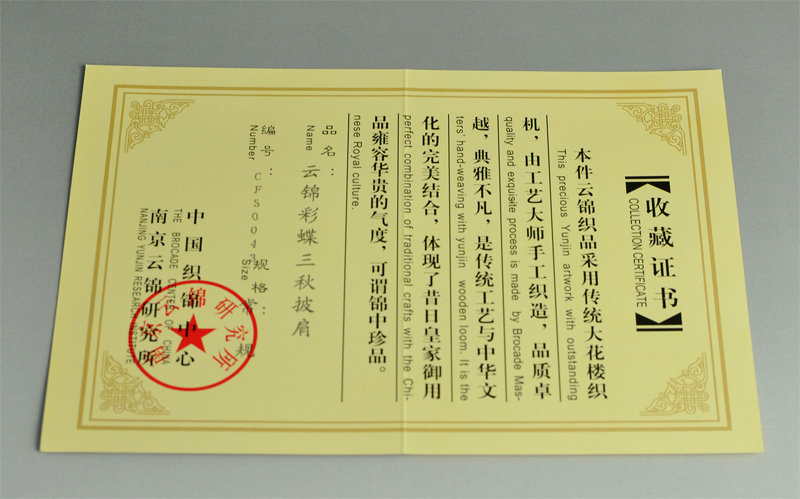 【收藏证书】
COLLECTION CERTIFICATE
本件云锦织品采用传统大花楼织
This precious Yunjin artwork with outstanding
机，由工艺大师手工织造，品质卓
quality and exquisite process is made by Brocade Mas-
越，典雅不凡，是传统工艺与中华文
ters' hand-weaving with yunjin wooden loom. It is the
化的完美结合，体现了昔日皇家御用
perfect combination of traditional crafts with the Chi-
品雍容华贵的气度，可谓锦中珍品。
nese Royal culture.
品名：云锦彩蝶三秋披肩
Name
编号：CFSQ043 规格：常规
Number Size
中国织锦中心
THE BROCADE CENTER OF CHINA
南京云锦研究所
NANJING YUNJIN RESEARCH INSTITUTE
锦研究所